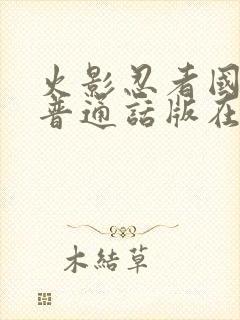 火影忍者國
普通話版在
木結草